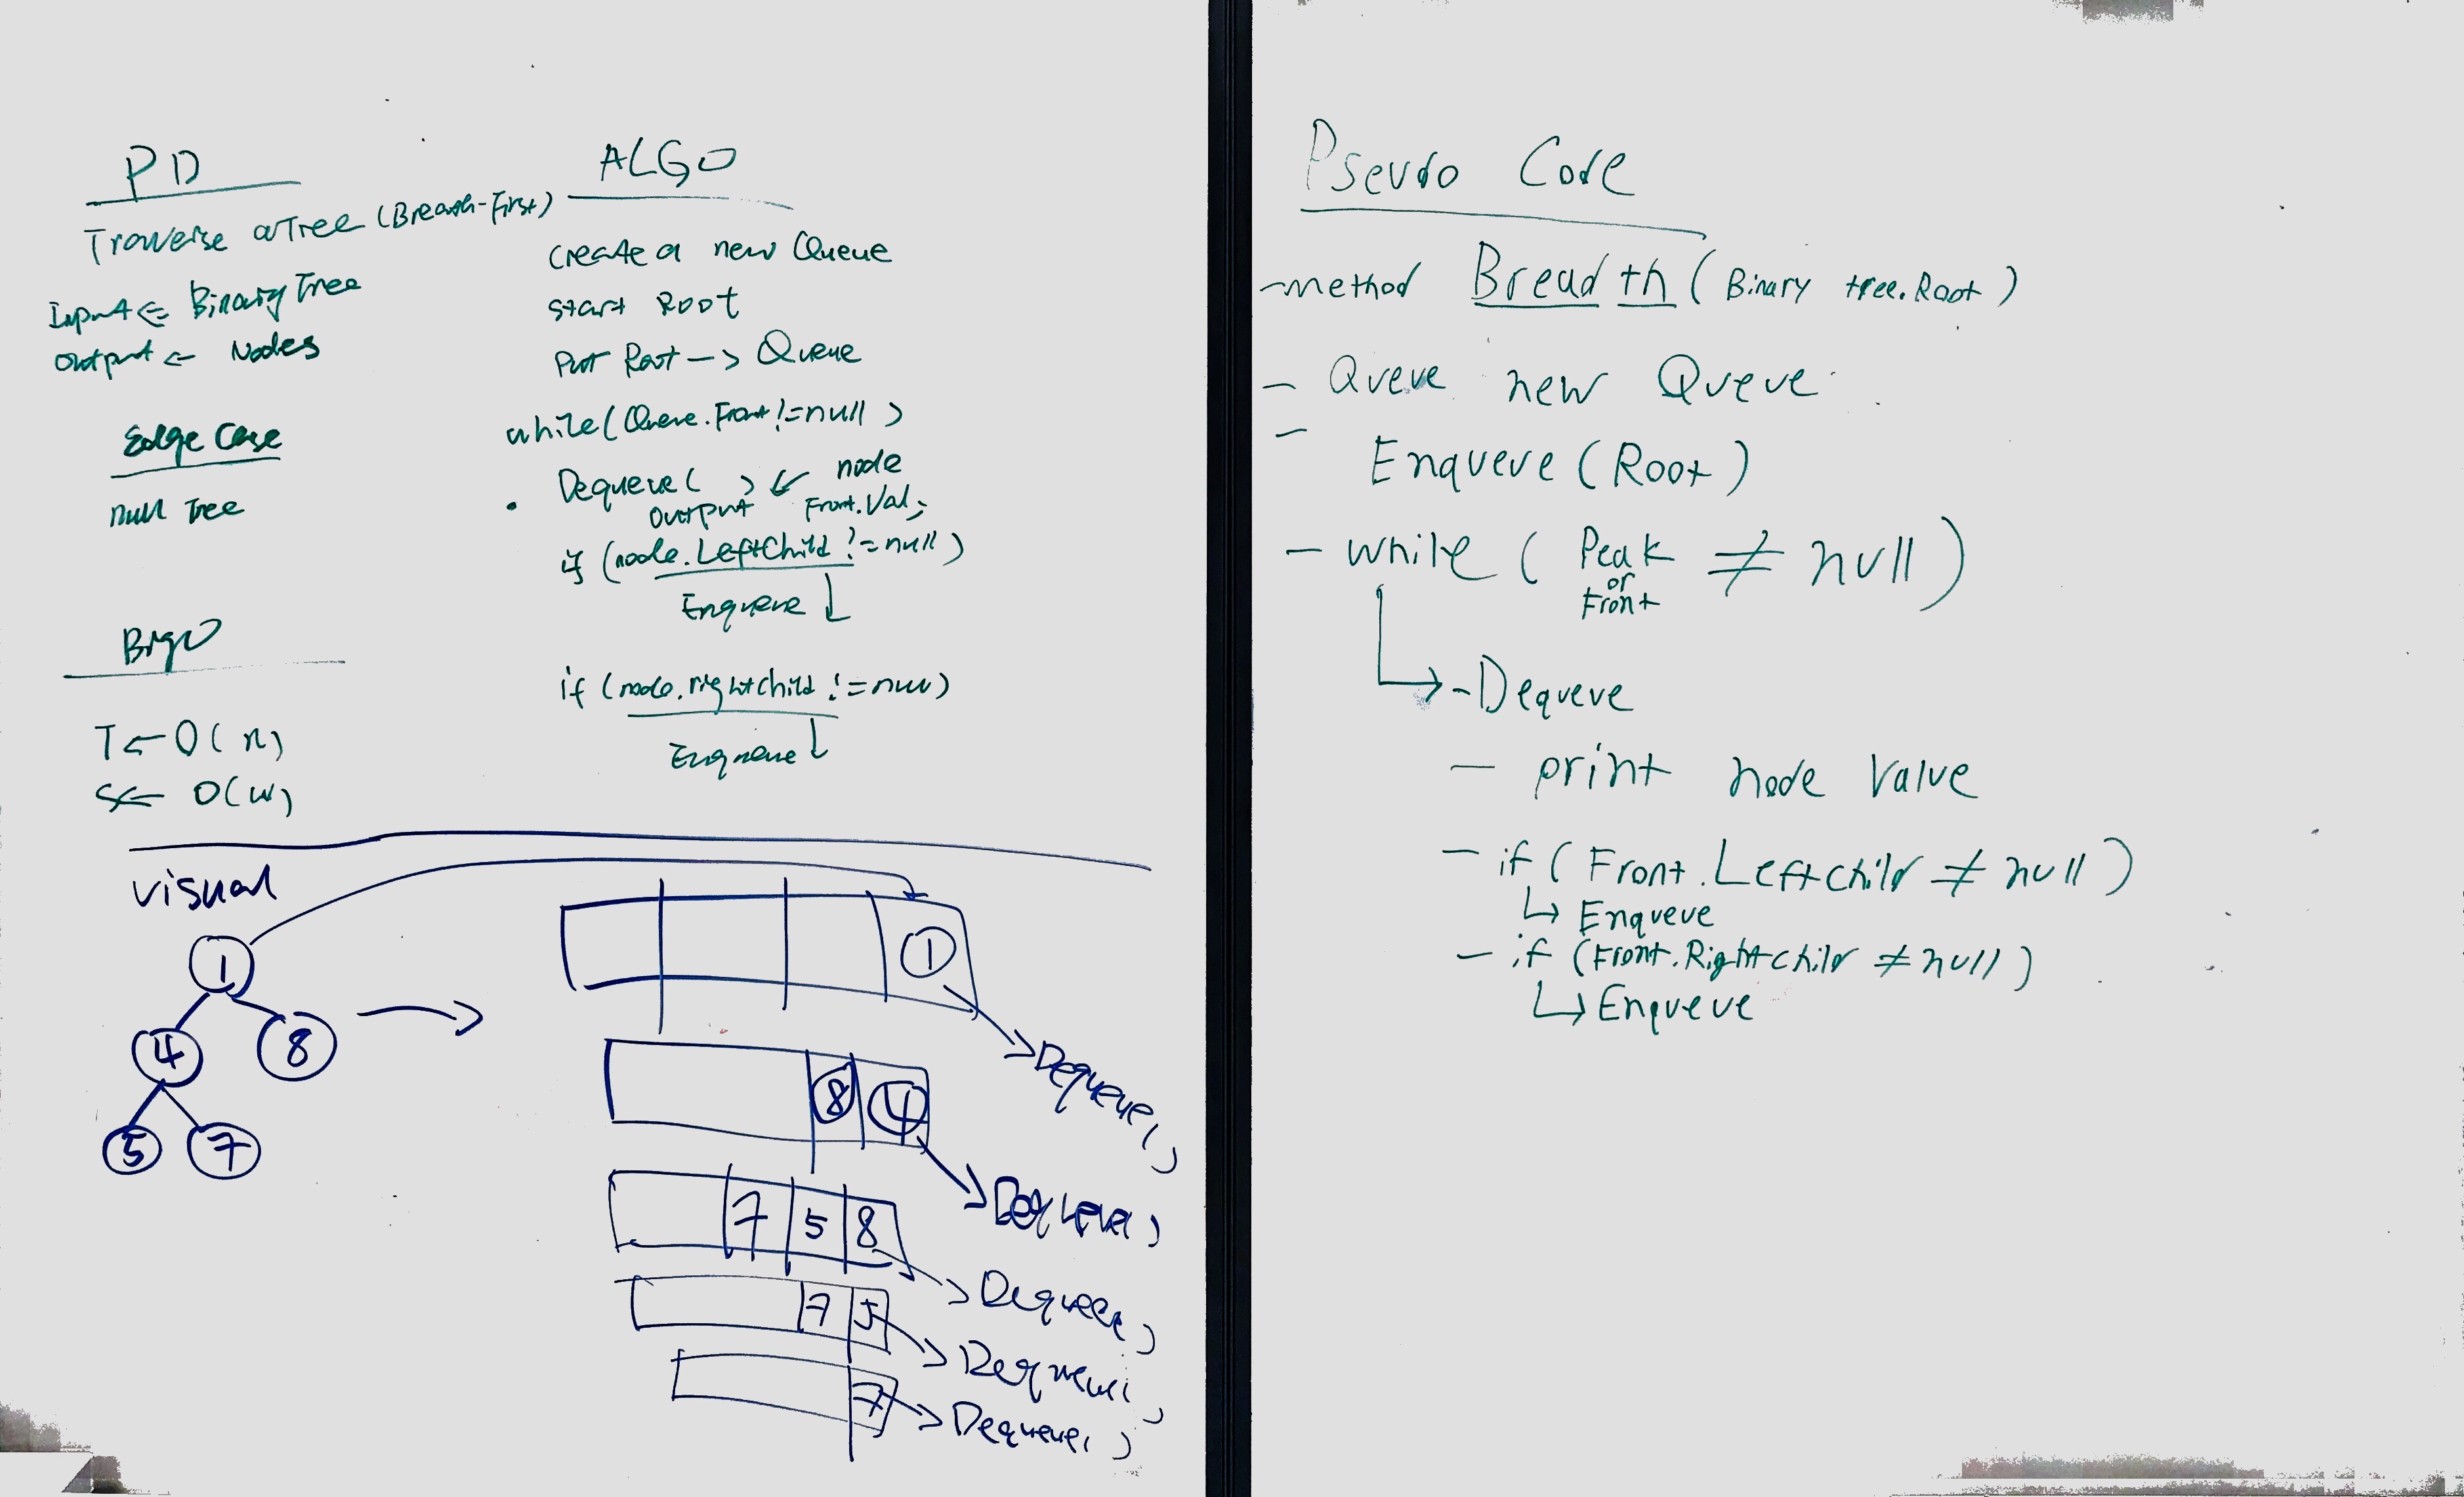 PD
Traverse a Tree (Breath-First)
Input ⇐ Binary Tree
Output ← Nodes
Edge Case
null Tree
BigO
T ← O(n)
S ← O(w)
ALGO
Create a new Queue
start Root
Put Root -> Queue
while(Queue.Front != null)
Dequeue( ) ← node
output Front.Val;
if (node.LeftChild != null)
Enqueue
if (node.rightChild != null)
Enqueue
visual
1
4 8
5 7
1
Dequeue()
8 4
Dequeue()
7 5 8
Dequeue()
7 5
Dequeue()
7
Dequeue()
Pseudo Code
-method Breadth (Binary tree.Root)
- Queue new Queue
-
Enqueue (Root)
- while ( Peak ≠ null)
or
Front
- Dequeue
- print node Value
- if ( Front.Leftchild ≠ null)
↳ Enqueue
- if (Front.Rightchild ≠ null)
↳ Enqueue